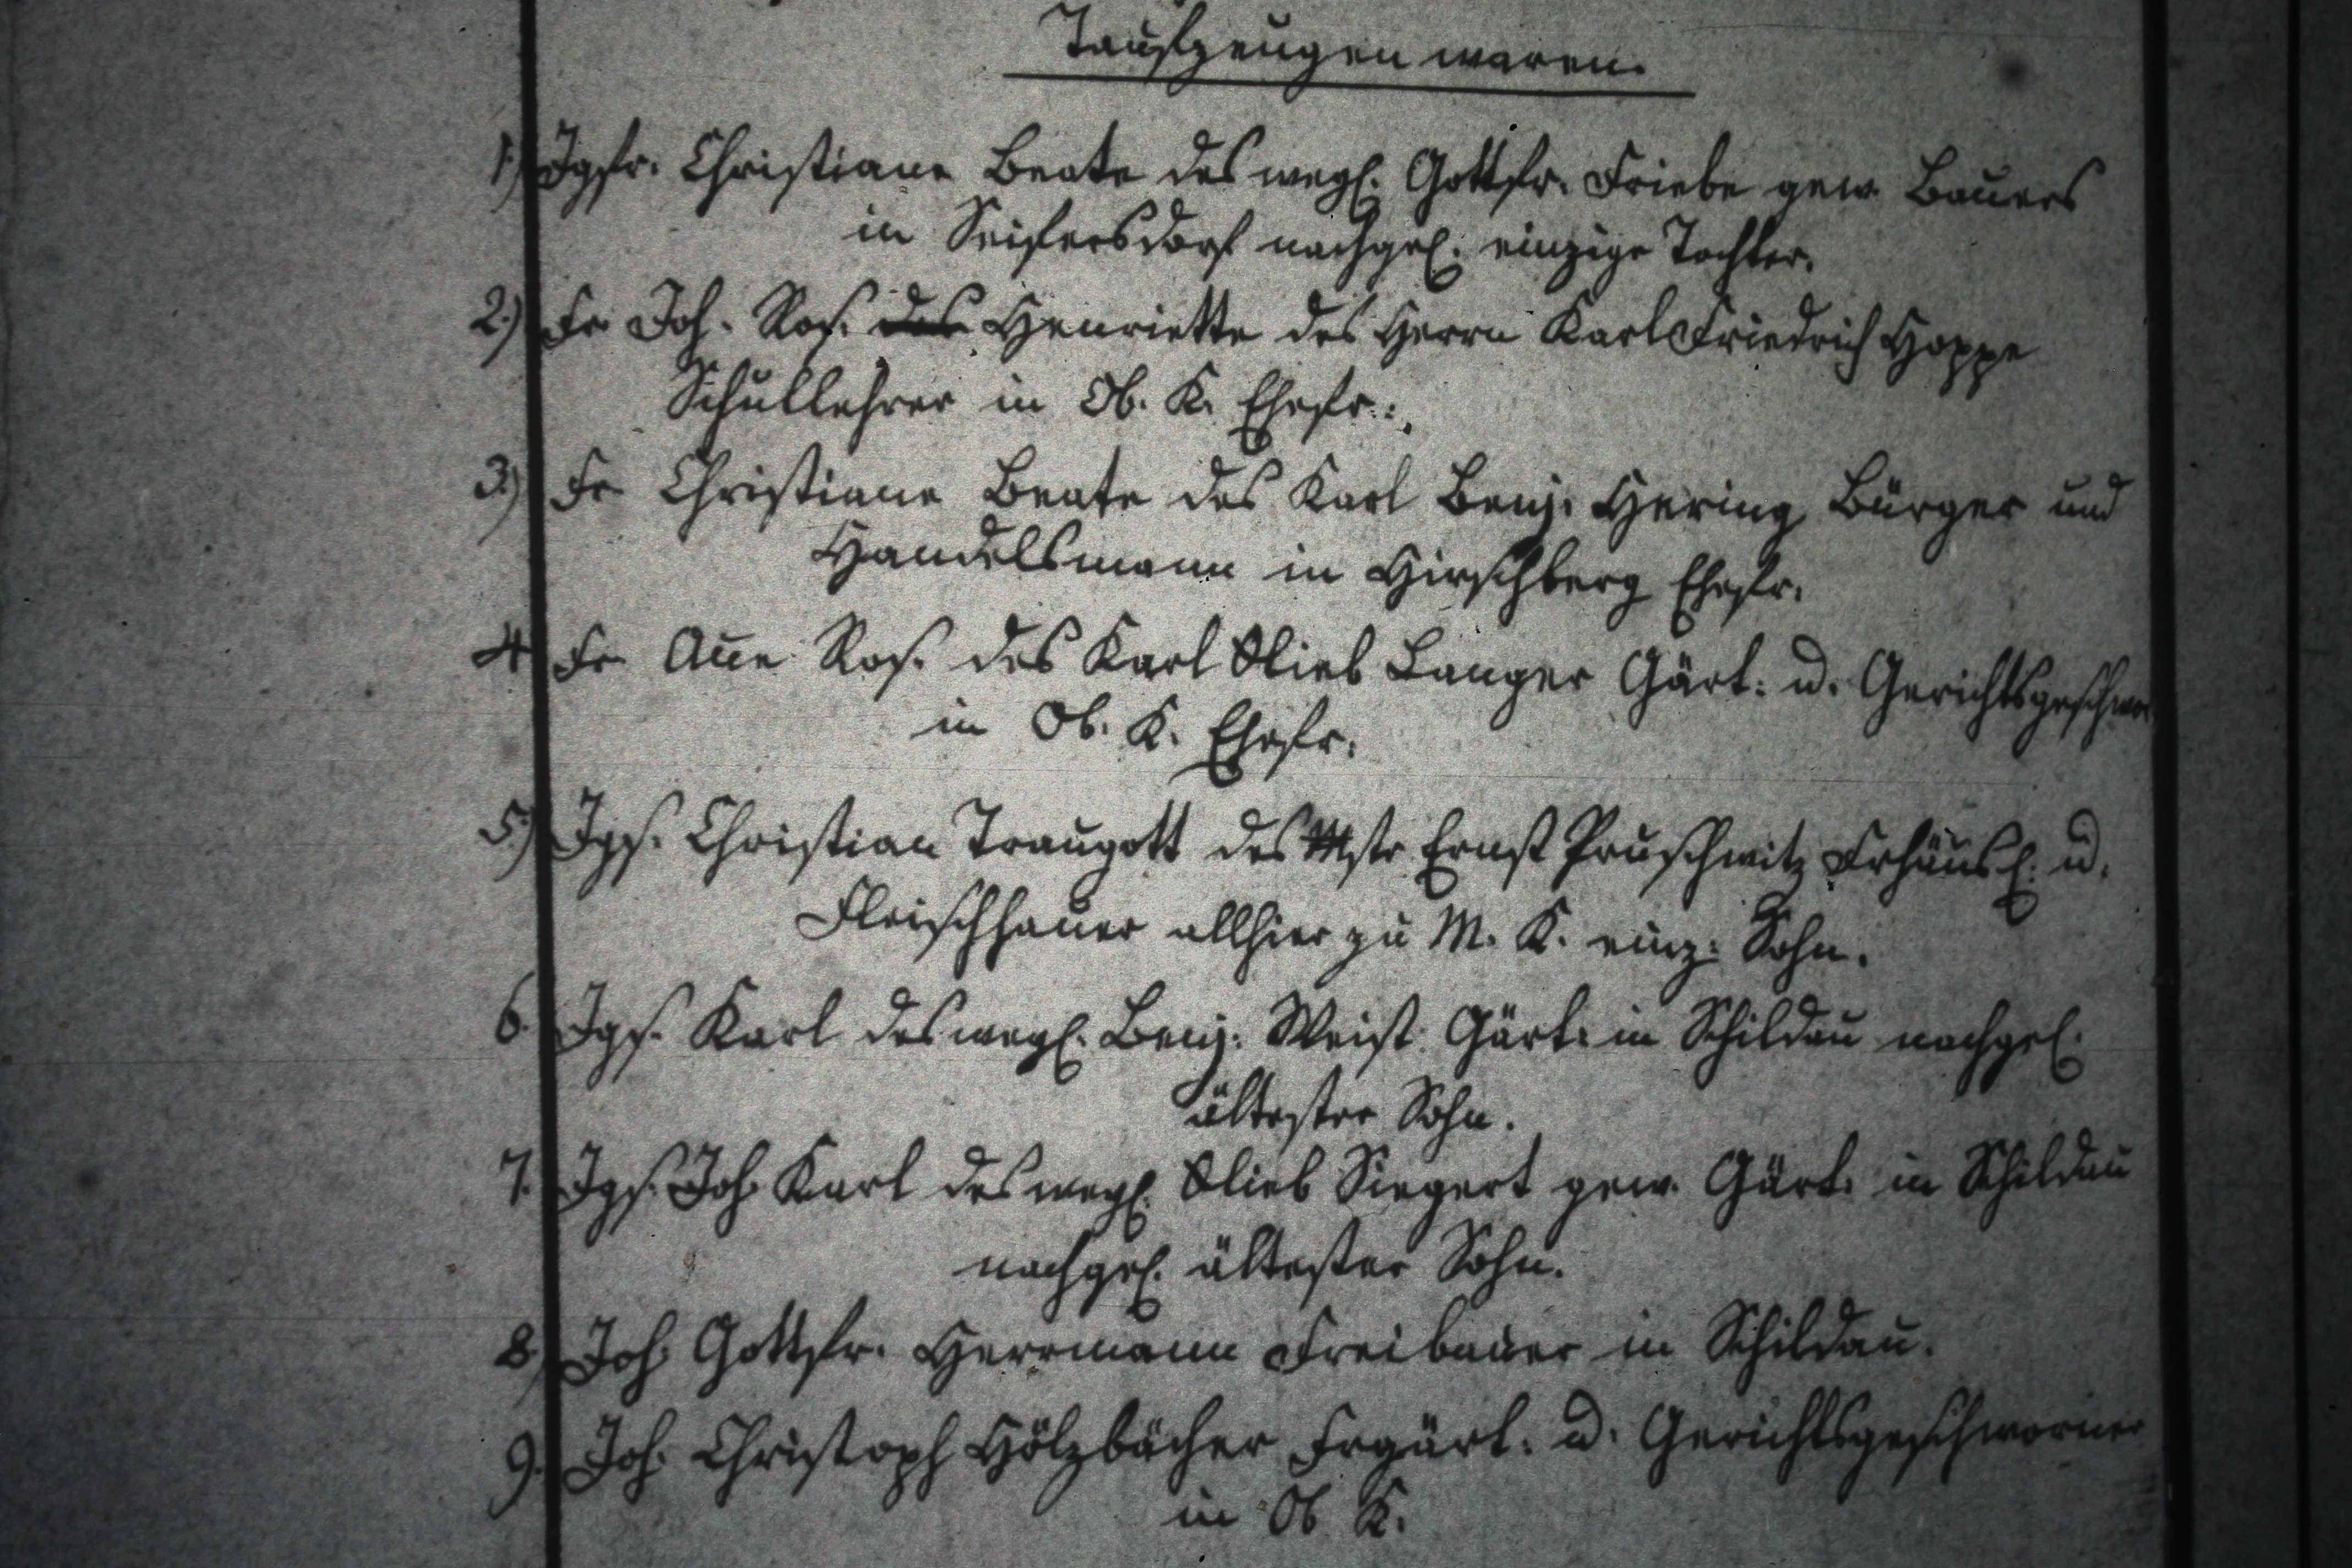 Taufzeugen waren.
1.) Jgfr. Christiane Beate des wegl. Gottfr. Friebe gew. Bauers
in Seifersdorf nachgel. einzige Tochter.
2.) Fr. Joh. Ros. des Henriette des Herrn Karl Friedrich Hoppe
Schullehrer in Ob. K. Ehefr.
3.) Fr Christiane Beate des Karl Benj. Hering Bürger und
Handelsmann in Hirschberg Ehefr.
4. Fr. Anne Ros. des Karl Glieb Langer Gärt. u. Gerichtsgeschwor
in Ob. K. Ehefr.
5.) Jgs. Christian Traugott des Mstr Ernst Pruschwitz Frhäusl. u.
Fleischhauer allhier zu M. K. einz. Sohn.
6. Jgs. Karl des wegl. Benj. Weist Gärt. in Schildau nachgel.
ältester Sohn.
7. Jgs. Joh. Karl des wegl. Glieb Siegert gew. Gärt. in Schildau
nachgel. ältester Sohn.
8.) Joh. Gottfr. Herrmann Freibauer in Schildau.
9. Joh. Christoph Hölzbächer Frgärt. u. Gerichtsgeschworner
in Ob. K.